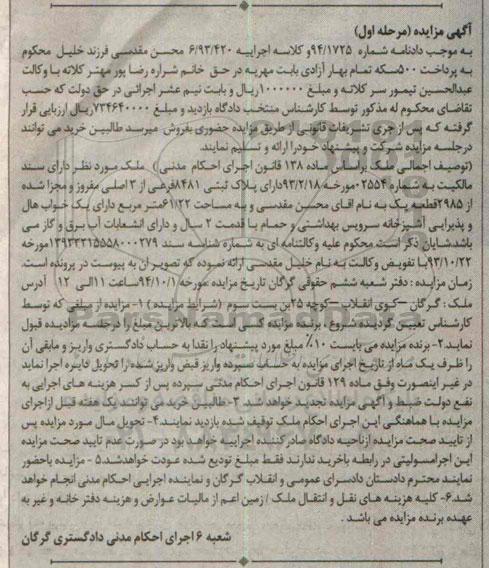 آگهی مزایده (مرحله اول)
به موجب دادنامه شماره ۹۴/۱۷۲۵و کلاسه اجراییه ۶/۹۳/۴۲۰ محسن مقدسی فرزند خلیل محکوم
به پرداخت ۵۰۰سکه تمام بهار آزادی بابت مهریه در حق خانم شراره رضا پور مهتر کلاته با وکالت
عبدالحسین تیمور سر کلاته و مبلغ ۱۰۰۰۰۰۰ریال و بابت نیم عشر اجرائی در حق دولت که حسب
تقاضای محکوم له مذکور توسط کارشناس منتخب دادگاه بازدید و مبلغ ۷۳۴۶۴۰۰۰۰ریال ارزیابی قرار
گرفته که پس از جری تشریفات قانونی از طریق مزایده حضوری بفروش میرسد طالبین خرید می توانند
درجلسه مزایده شرکت و پیشنهاد خودرا ارائه و تسلیم نمایند.
(توصیف اجمالی ملک براساس ماده ۱۳۸ قانون اجرای احکام مدنی) ملک مورد نظر دارای سند
مالکیت به شماره ۰۲۵۵۴مورخه ۹۳/۲/۱۸دارای پلاک ثبتی ۸۴۸۱فرعی از ۳ اصلی مفروز و مجزا شده
از ۲۹۸۵قطعه یک به نام اقای محسن مقدسی و به مساحت ۶۱/۲۲متر مربع دارای یک خواب هال
و پذیرایی آشپزخانه سرویس بهداشتی و حمام با قدمت ۲ سال و دارای انشعابات آب برق و گاز می
باشدشایان ذکر است محکوم علیه وکالتنامه ای به شماره شناسه سند ۱۳۹۳۳۲۱۵۵۵۸۰۰۰۲۷۹مورخه
۹۳/۱۰/۲۲با تفویض وکالت به نام خلیل مقدسی ارائه نموده که تصویر ان به پیوست در پرونده است.
زمان مزایده : دفتر شعبه ششم حقوقی گرگان تاریخ مزایده مورخه ۹۴/۱۰/۱ساعت ۱۱الی ۱۲ آدرس
ملک : گرگان –کوی انقلاب –کوچه ۲۵بن بست سوم (شرایط مزایده) ۱- مزایده از مبلغی که توسط
کارشناس تعیین گردیده شروع ، برنده مزایده کسی است که بالاترین مبلغ را درجلسه مزادیده قبول
نماید.۲- برنده مزایده می بایست ۱۰٪ مبلغ مورد پیشنهاد را نقدا به حساب دادگستری واریز و مابقی آن
را ظرف یک ماه از تاریخ اجرای مزایده به حساب سپرده واریز قبض واریز شده را تحویل دایره اجرا نماید
در غیر اینصورت وفق ماده ۱۲۹ قانون اجرای احکام مدنی سپرده پس از کسر هزینه های اجرایی به
نفع دولت ضبط و آگهی مزایده تجدید خواهد شد. ۳-طالبین خرید می توانند یک هفته قبل ازاجرای
مزایده با هماهنگی این اجرای احکام ملک توقیف شده بازدید نمایند.۴- تحویل مال مورد مزایده پس
از تایید صحت مزایده ازناحیه دادگاه صادرکننده اجراییه خواهد بود در صورت عدم تایید صحت مزایده
این اجرامسولیتی در رابطه باخرید ندارند فقط مبلغ تودیع شده عودت خواهدشد.۵ -مزایده باحضور
نمایند محترم دادستان دادسرای عمومی و انقلاب گرگان و نماینده اجرایی احکام مدنی انجام خواهد
شد.۶- کلیه هزینه های نقل و انتقال ملک / زمین اعم از مالیات عوارض و هزینه دفتر خانه و غیر به
عهده برنده مزایده می باشد .
شعبه ۶ اجرای احکام مدنی دادگستری گرگان
ParsNamadData